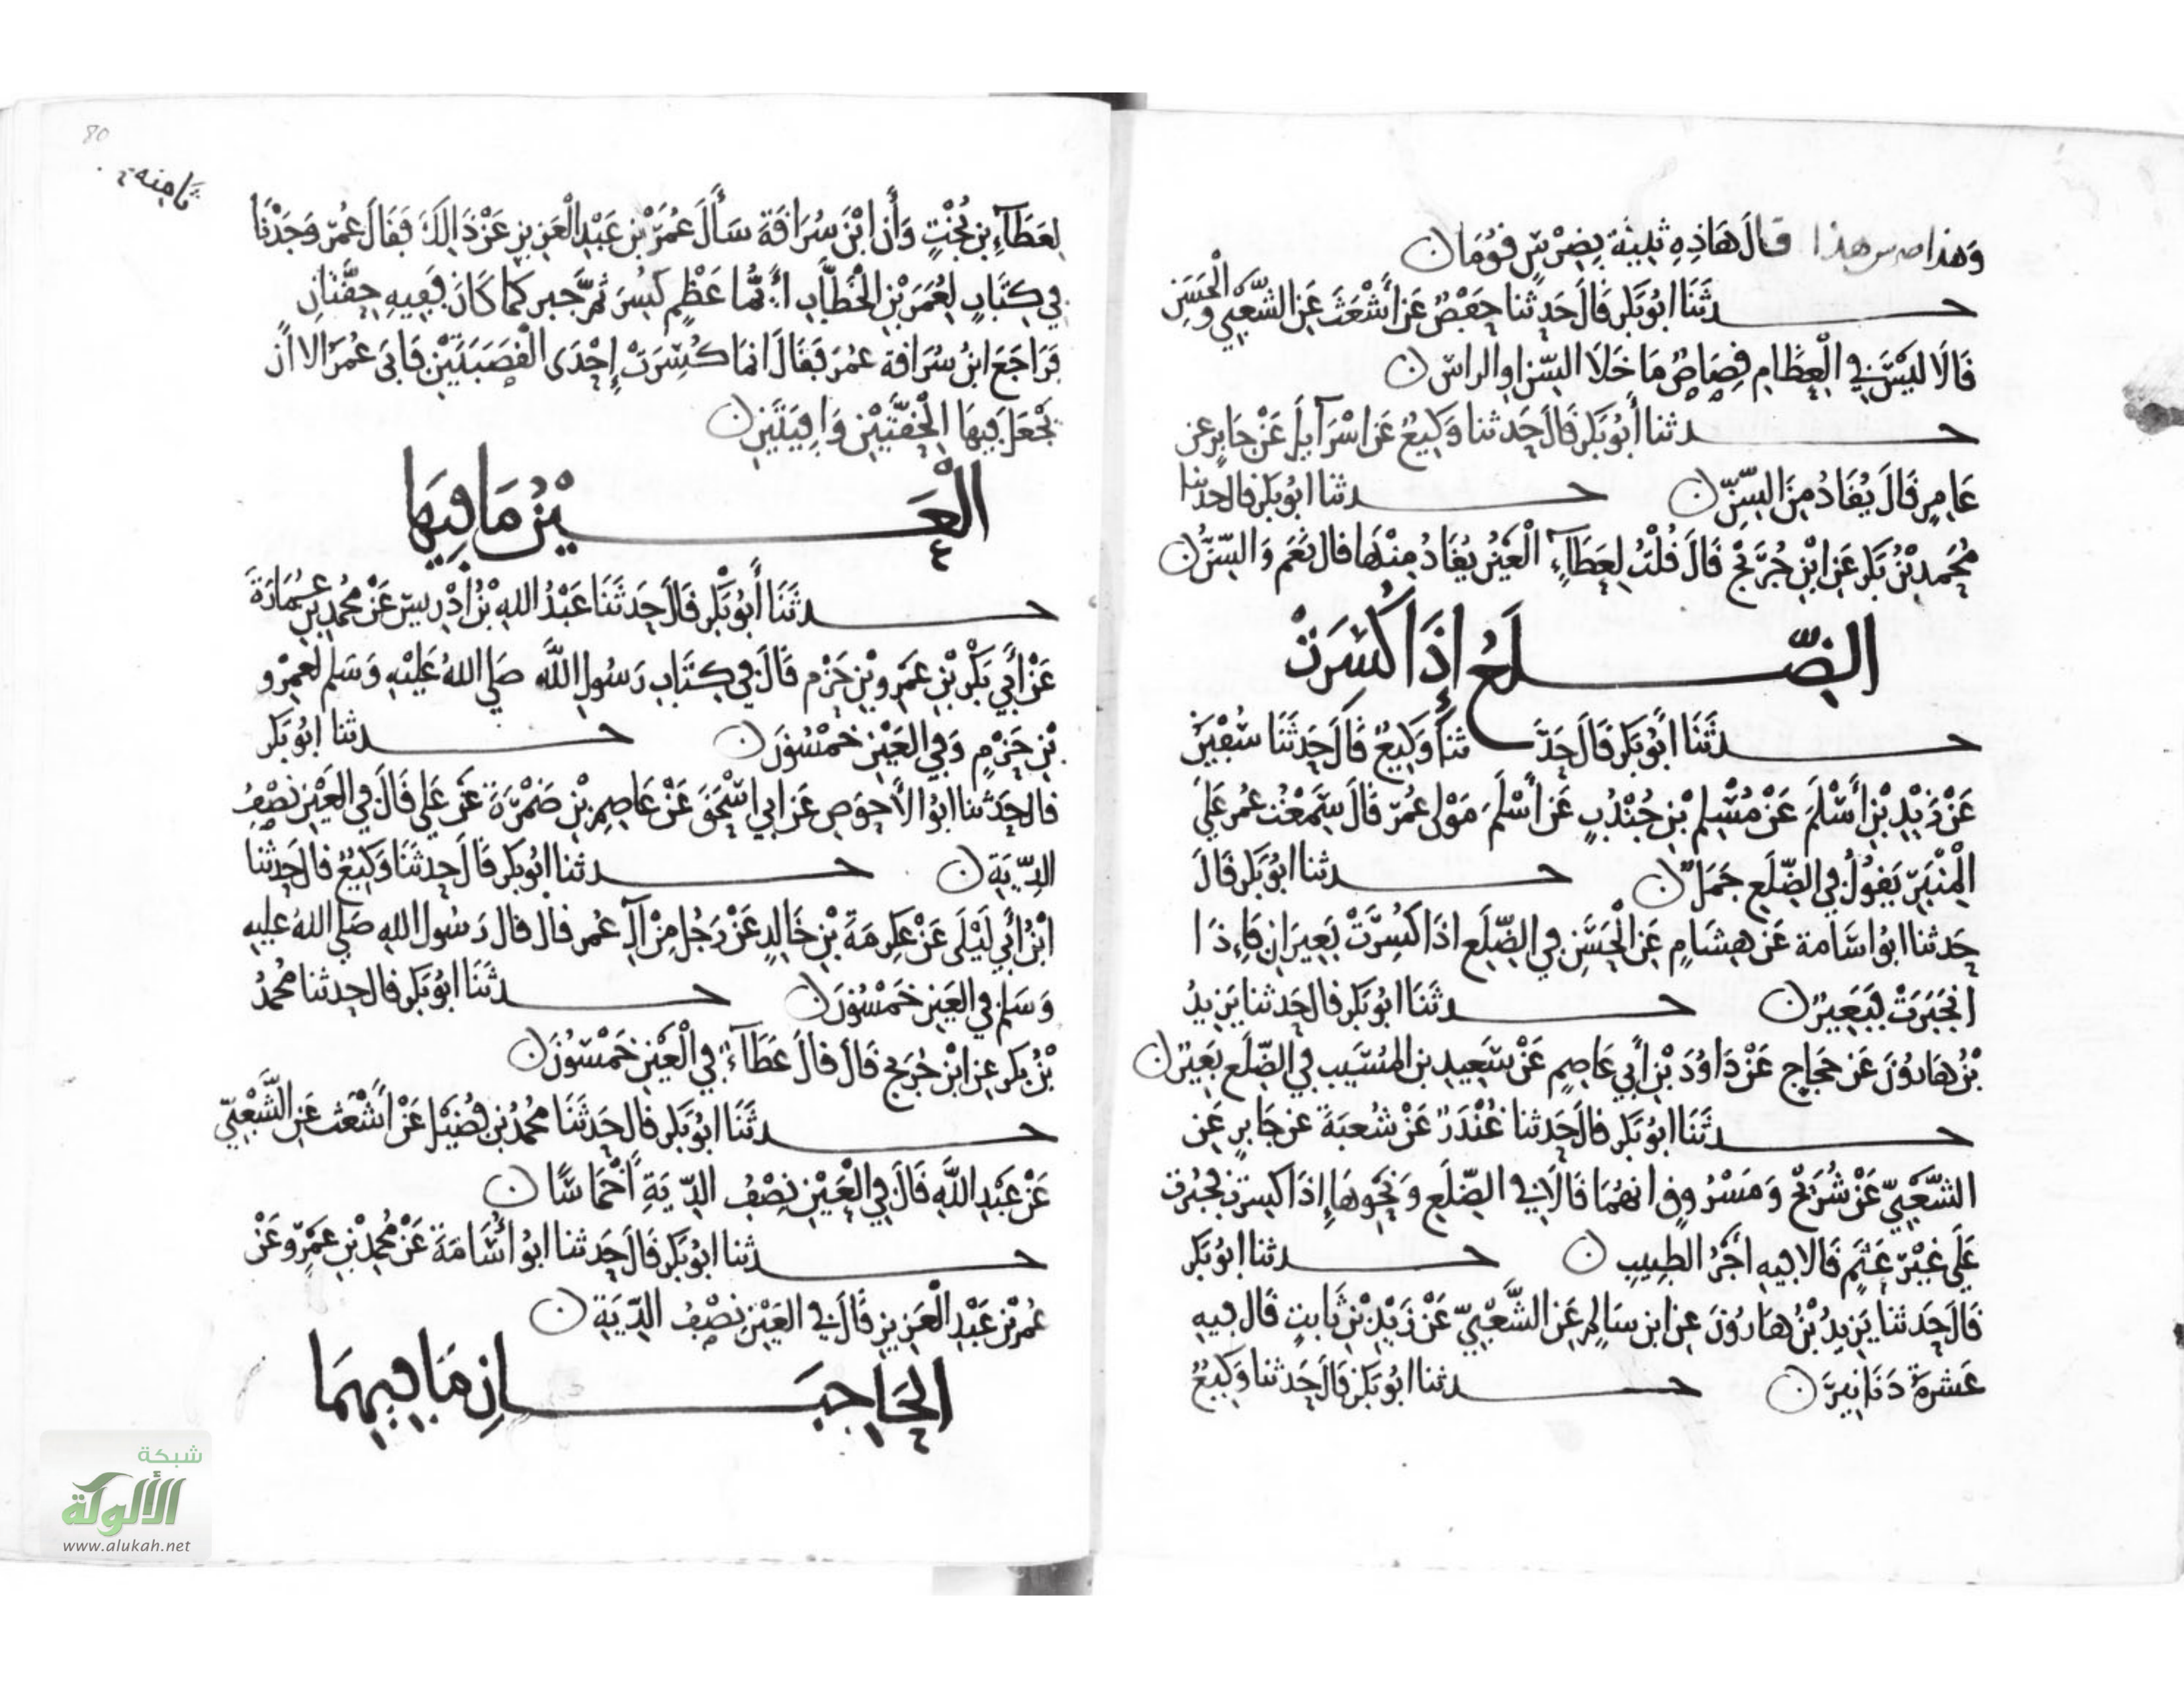 وَهذا ضرس هذا قَالَ هَاذِهِ ثَنِيَّة بِضِرْسٍ قُوْمَا ن
حدثَنَا ابُو بَكر قَالَ حَدثنا حَفْصٌ عَن أَشْعَثَ عَنِ الشَّعْبِي وَالْحَسَنِ
قَالَا لَيْسَ فِي الْعِظَامِ قِصَاصٌ مَا خَلَا السِّن او الراس ن
حدثنا أَبُو بَكر قَالَ حَدثنا وَكِيعٌ عَن اسْرَآيلَ عَنْ جَابِر عن
عَامِرٍ قَالَ يُقَادُ مِنَ السِّنِّ ن حدثنا ابُو بَكر قال حدثنا
مُحَمد بْنُ بَكر عَنِ ابْنِ جُرَيْج قَالَ قُلْتُ لِعَطَآءٍ الْعَيْنُ يُقَادُ مِنْهَا قال نَعَم وَالسِّنُّ ن
الضِّلَعُ إِذَا كُسِرَتْ
حدثَنَا أَبُو بَكر قَالَ حَدَّثنا وَكِيعٌ قَالَ حَدثَنَا سُفْيَنُ
عَنْ زَيْدِ بْنِ أَسْلَمَ عَنْ مُسْلِم بْنِ جُنْدُبٍ عَن أَسْلَمَ مَوْلى عُمَر قَالَ سَمِعْتُ عُمر عَلَى
الْمِنْبَرِ يَقُولُ فِي الضِّلَعِ جَمَلٌ ن حدثنا ابُو بَكر قَالَ
حَدثنا ابُو اسَامة عَن هِشَامٍ عَنِ الْحَسَنِ فِي الضِّلَعِ اذَا كُسِرَتْ بَعِيرَانِ فَإِذَا
انْجَبَرَتْ فَبَعِيرٌ ن حدثَنَا ابُو بَكر قال حَدثنا يَزِيدُ
بْنُ هَارُونَ عَن حَجاج عَنْ دَاوُدَ بْنِ أَبِي عَاصِمٍ عَنْ سَعِيدِ بن المُسَيب فِي الضِّلَع بَعِيرٌ ن
حدثَنَا ابُو بَكر قال حَدثنا غُنْدَرٌ عَنْ شُعبَةَ عن جَابرٍ عَن
الشَّعْبِيّ عَنْ شُرَيْح وَمَسْرُوقٍ انهُمَا قَالَا فِي الضِّلَعِ وَنَحْوِهَا إِذَا كسرت فجُبرت
عَلَى غَيْرِ عَثَمٍ قَالا فيه أَجْرُ الطبيبِ ن حدثنا ابُو بَكر
قَالَ حَدثنا يَزِيدُ بْنُ هَارُونَ عنِ ابن سَالِم عَنِ الشَّعْبِيّ عَنْ زَيْدِ بْنِ ثَابتٍ قَال فيه
عَشرة دَنَانِيرَ ن حدثنا ابُو بَكر قَالَ حَدثنا وَكِيعٌ
80
ثامنة
لِعَطَآءِ بن بُخْتٍ وَأن ابْنَ سُرَاقَةَ سَأَلَ عُمَرَ بْن عَبْدِ الْعَزِيزِ عَنْ ذَالِكَ فَقَالَ عُمَر وَجَدْنَا
فِي كِتَابٍ لِعُمَرَ بْنِ الْخَطَّابِ أَيُّمَا عَظْمٍ كُسِرَ ثُمَّ جبر كما كَانَ فَفِيهِ حِقَّتَانِ
فَرَاجَعَ ابنُ سُرَاقة عُمَر فَقَالَ انمَا كُسِرَتْ إِحْدَى الْقَصَبَتَيْنِ فَابَى عُمَر الا ان
يَجْعَلَ فِيهَا الْحِقَّتَيْنِ وَافِيَتَيْنِ ن
الْعَيْنُ مَا فِيهَا
حدثَنَا أَبُو بَكْرٍ قَالَ حَدثَنَا عَبْدُ اللهِ بْنُ ادْرِيسَ عَنْ مُحَمد بْنِ عُمَارَةَ
عَنْ أَبِي بَكْرِ بْنِ عَمْرِو بْنِ حَزْم قَالَ فِي كِتَابِ رَسُولِ اللَّه صَلى اللهُ عَلَيْهِ وَسَلم لعَمْرو
بْنِ حَزْمٍ وَفِي العَيْنِ خَمْسُونَ ن حدثنا ابُو بَكر
قال حَدثنا ابُو الاحوَصِ عَن ابي اسْحَقَ عَنْ عَاصِمِ بْنِ ضَمْرَةَ عَن عَلي قَالَ فِي العَيْنِ نِصْفُ
الدِّيَةِ ن حدثنا ابُو بَكر قَالَ حَدثَنَا وَكِيعٌ قال حَدثنا
ابْنُ أَبِي لَيْلَى عَنْ عِكرِمَةَ بْنِ خَالِدٍ عَنْ رَجُلٍ مِنْ آلِ عُمر قال قال رَسُول الله صَلى اللهُ عليه
وَسَلم فِي العَينِ خَمْسُونَ ن حدثَنَا ابُو بَكر قال حدثنا مُحمدُ
بْنُ بَكر عنِ ابْنِ جُرَيج قَالَ قَالَ عَطَآءٌ فِي الْعَيْنِ خَمْسُونَ ن
حدثَنَا ابُو بَكر قال حَدثَنَا مُحمدُ بْن فُضَيْل عَنْ أَشْعَثَ عَنِ الشَّعْبِيّ
عَنْ عَبْدِ اللَّهِ قَالَ فِي الْعَيْنِ نِصْفُ الدِّيَةِ أَخْمَاسًا ن
حدثنا ابُو بَكر قَالَ حَدثنا ابُو أُسَامَةَ عَنْ مُحَمدِ بْنِ عَمْرٍو عَنْ
عُمَر بْنِ عَبْدِ الْعَزِيزِ قَالَ فِي العَيْنِ نِصْفُ الدِّيَةِ ن
الحَاجِبَانِ مَا فِيهِمَا
شبكة
الألوكة
www.alukah.net